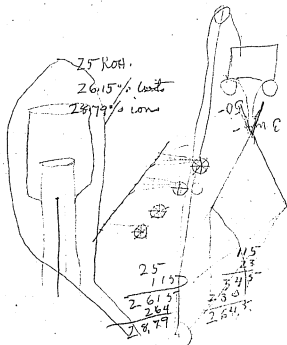 25 KOH.
26,15%
28,79% ions
50-
3
25
115
2 615
264
28,79
115
23
345
230
2645